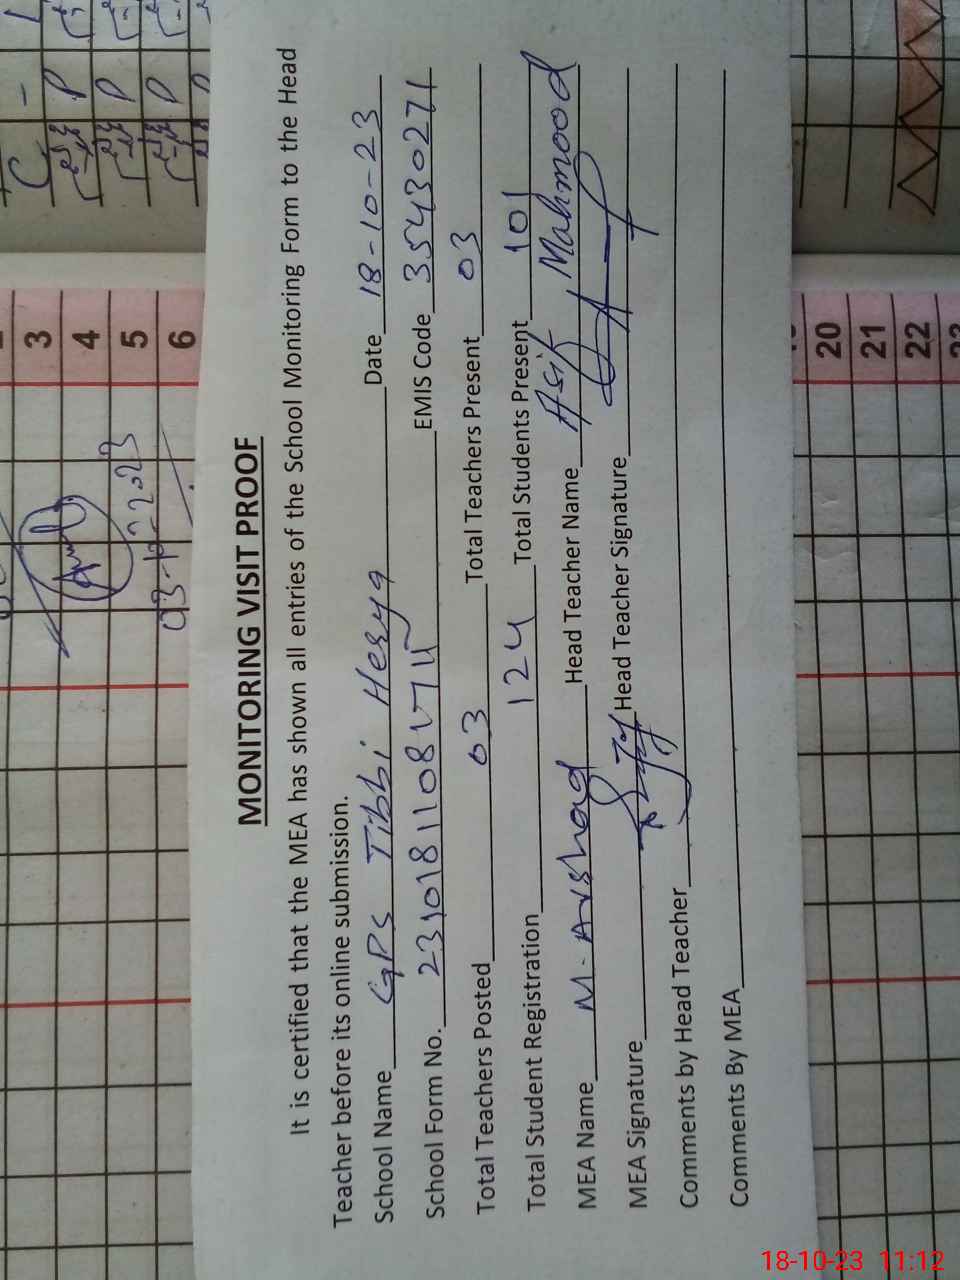 MONITORING VISIT PROOF
It is certified that the MEA has shown all entries of the School Monitoring Form to the Head
Teacher before its online submission.
School Name GPS Tibbi Hesya Date 18-10-23
School Form No. EMIS Code 35430271
Total Teachers Posted 03 Total Teachers Present 03
Total Student Registration 124 Total Students Present 101
MEA Name M. Arshad Head Teacher Name Asif Mahmood
MEA Signature Head Teacher Signature
Comments by Head Teacher
Comments By MEA
3
4
5
6
20
21
22
23
C -
P
P
P
18-10-23 11:12